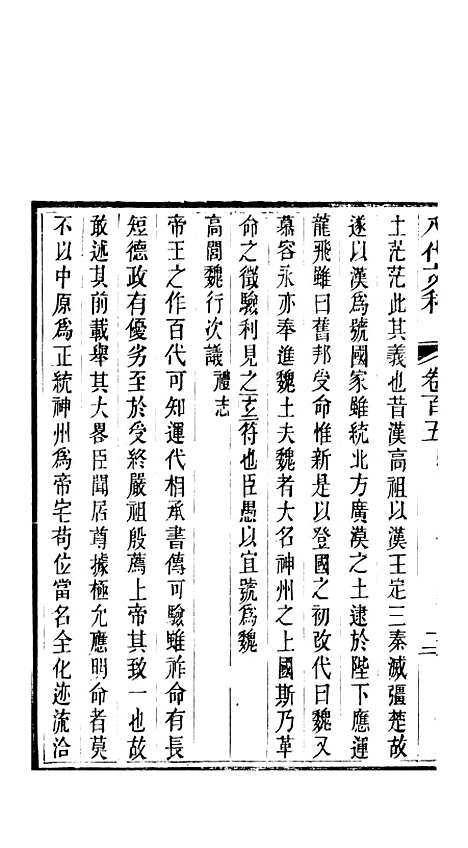 八代文粹 卷百五 二二
土茫茫此其義也昔漢高祖以漢王定三秦滅彊楚故
遂以漢爲號國家雖統北方廣漠之土逮於陛下應運
龍飛雖曰舊邦受命惟新是以登國之初改代曰魏又
慕容永亦奉進魏土夫魏者大名神州之上國斯乃革
命之徵驗利見之玄符也臣愚以宜號爲魏
高閭魏行次議禮志
帝王之作百代可知運代相承書傳可驗雖祚命有長
短德政有優劣至於受終嚴祖殷薦上帝其致一也故
敢述其前載舉其大畧臣聞居尊據極允應明命者莫
不以中原爲正統神州爲帝宅苟位當名全化迹流洽